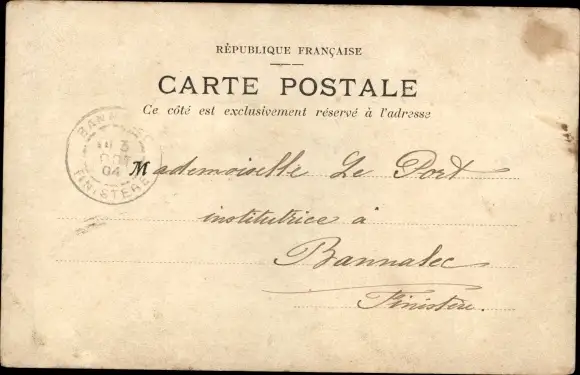 RÉPUBLIQUE FRANÇAISE
CARTE POSTALE
Ce côté est exclusivement réservé à l'adresse
BANNALEC
3
04
FINISTÈRE
Mademoiselle Le Port
institutrice à
Bannalec
Finistère.